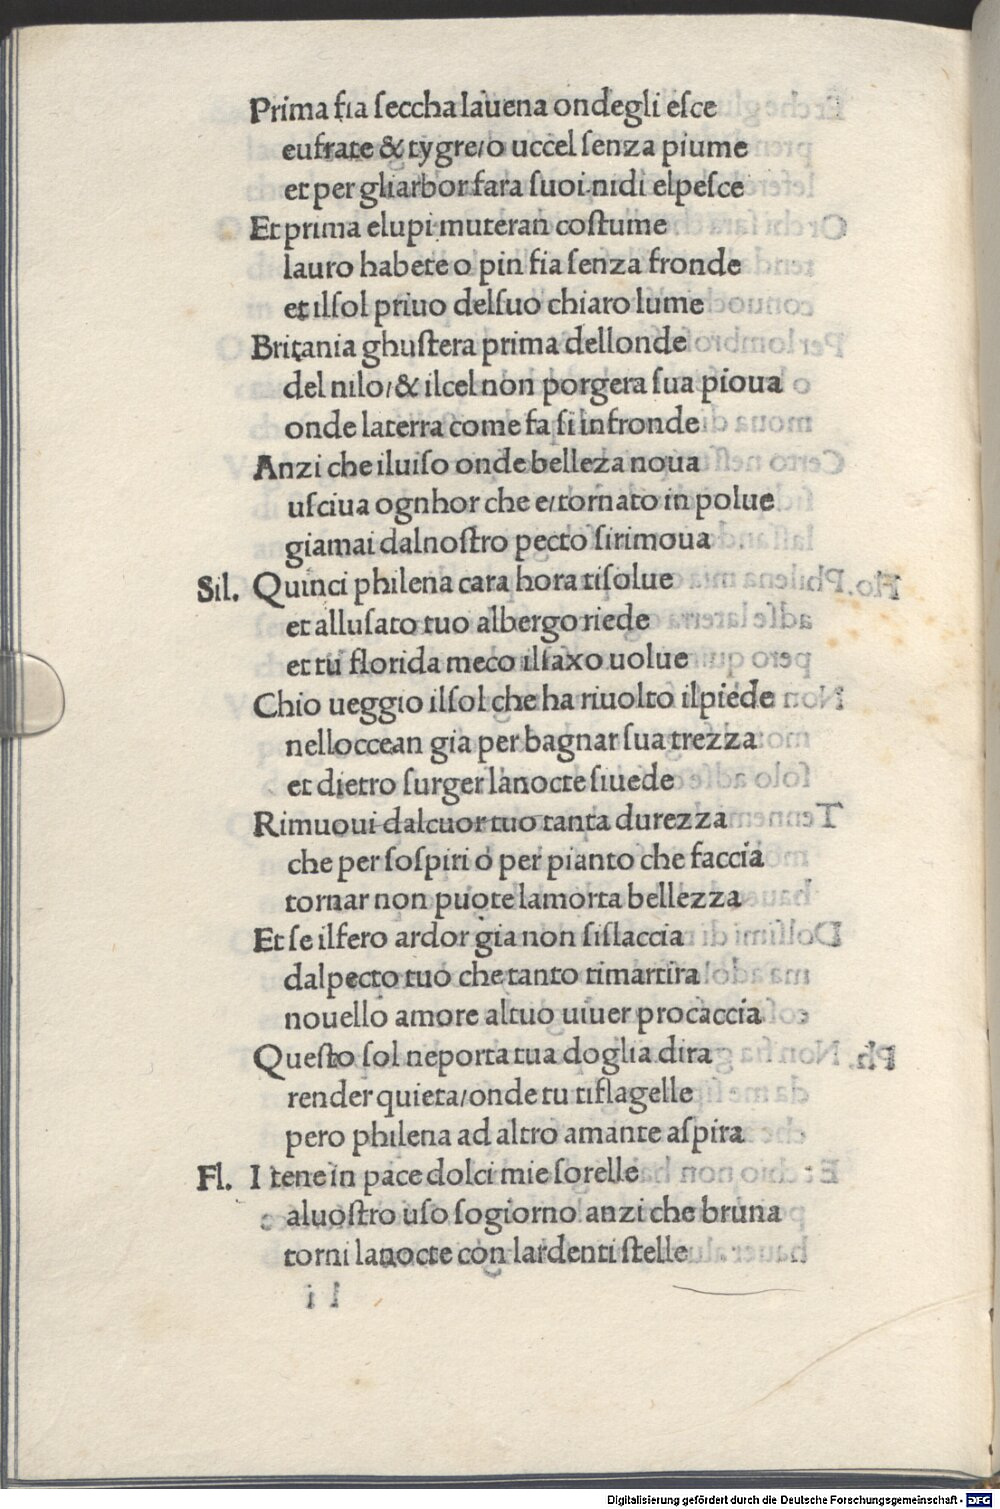 Prima fia ſeccha lauena ondegli eſce
eufrate & tygre/o uccel ſenza piume
et per gliarbor fara ſuoi nidi elpeſce
Et prima elupi muteran coſtume
lauro habete o pin fia ſenza fronde
et ilſol priuo delſuo chiaro lume
Britania ghuſtera prima dellonde
del nilo/& ilcel non porgera ſua pioua
onde laterra come fa ſi infronde
Anzi che iluiſo onde belleza noua
uſciua ognhor che e/tornato in polue
giamai dalnoſtro pecto ſirimoua
Sil. Quinci philena cara hora tiſolue
et alluſato tuo albergo riede
et tu florida meco ilſaxo uolue
Chio ueggio ilſol che ha riuolto ilpiede
nelloccean gia per bagnar ſua trezza
et dietro ſurger lanocte ſiuede
Rimuoui dalcuor tuo tanta durezza
che per ſoſpiri o per pianto che faccia
tornar non puote lamorta bellezza
Et ſe ilfero ardor gia non ſiſlaccia
dalpecto tuo che tanto timartira
nouello amore altuo uiuer procaccia
Queſto ſol neporta tua doglia dira
render quieta/onde tu tiflagelle
pero philena ad altro amante aſpira
Fl. I tene in pace dolci mie ſorelle
aluoſtro uſo ſogiorno anzi che bruna
torni lanocte con lardenti ſtelle
Digitalisierung gefördert durch die Deutsche Forschungsgemeinschaft - DFG